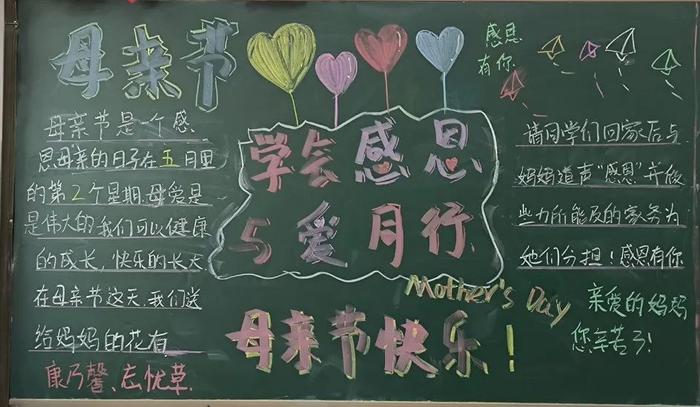 母亲节
母亲节是一个感
恩母亲的日子在五月里
的第2个星期.母爱是
是伟大的我们可以健康
的成长,快乐的长大
在母亲节这天,我们送
给妈妈的花有
康乃馨、忘忧草.
学会感恩
与爱月行
Mother's Day
母亲节快乐!
感恩
有你
请同学们回家后与
妈妈道声“感恩”并做
些力所能及的家务为
她们分担!感恩有你
亲爱的妈妈
您辛苦了!